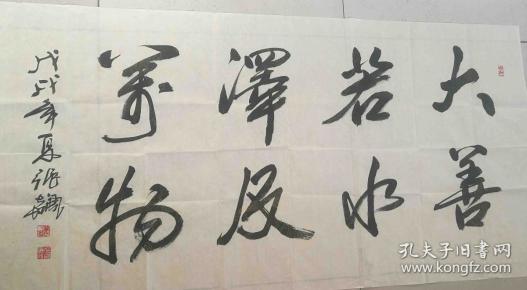 大善
若水
澤及
萬物
戊戌年夏張
孔夫子旧书网
www.kongfz.com